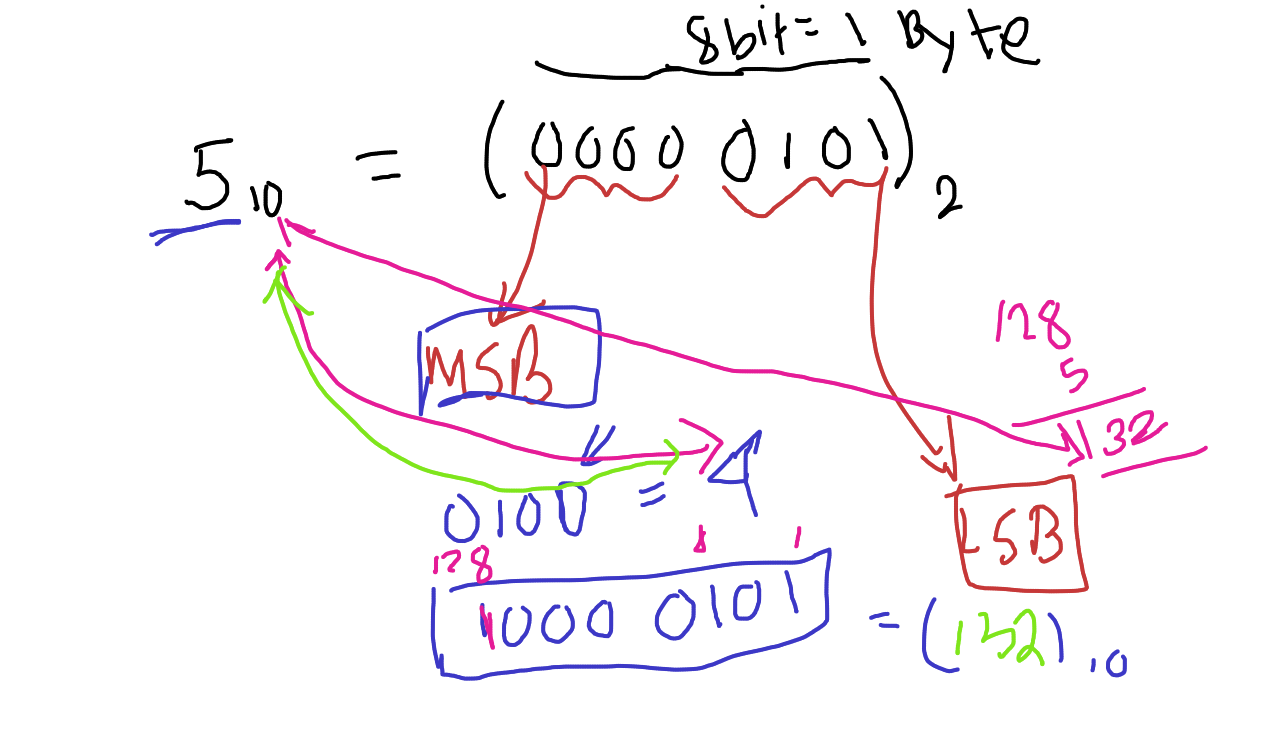 8bit = 1 Byte
5₁₀ = (0000 0101)₂
MSB
128
5
132
0100 = 4
LSB
128 1 1
1000 0101 = (132)₁₀